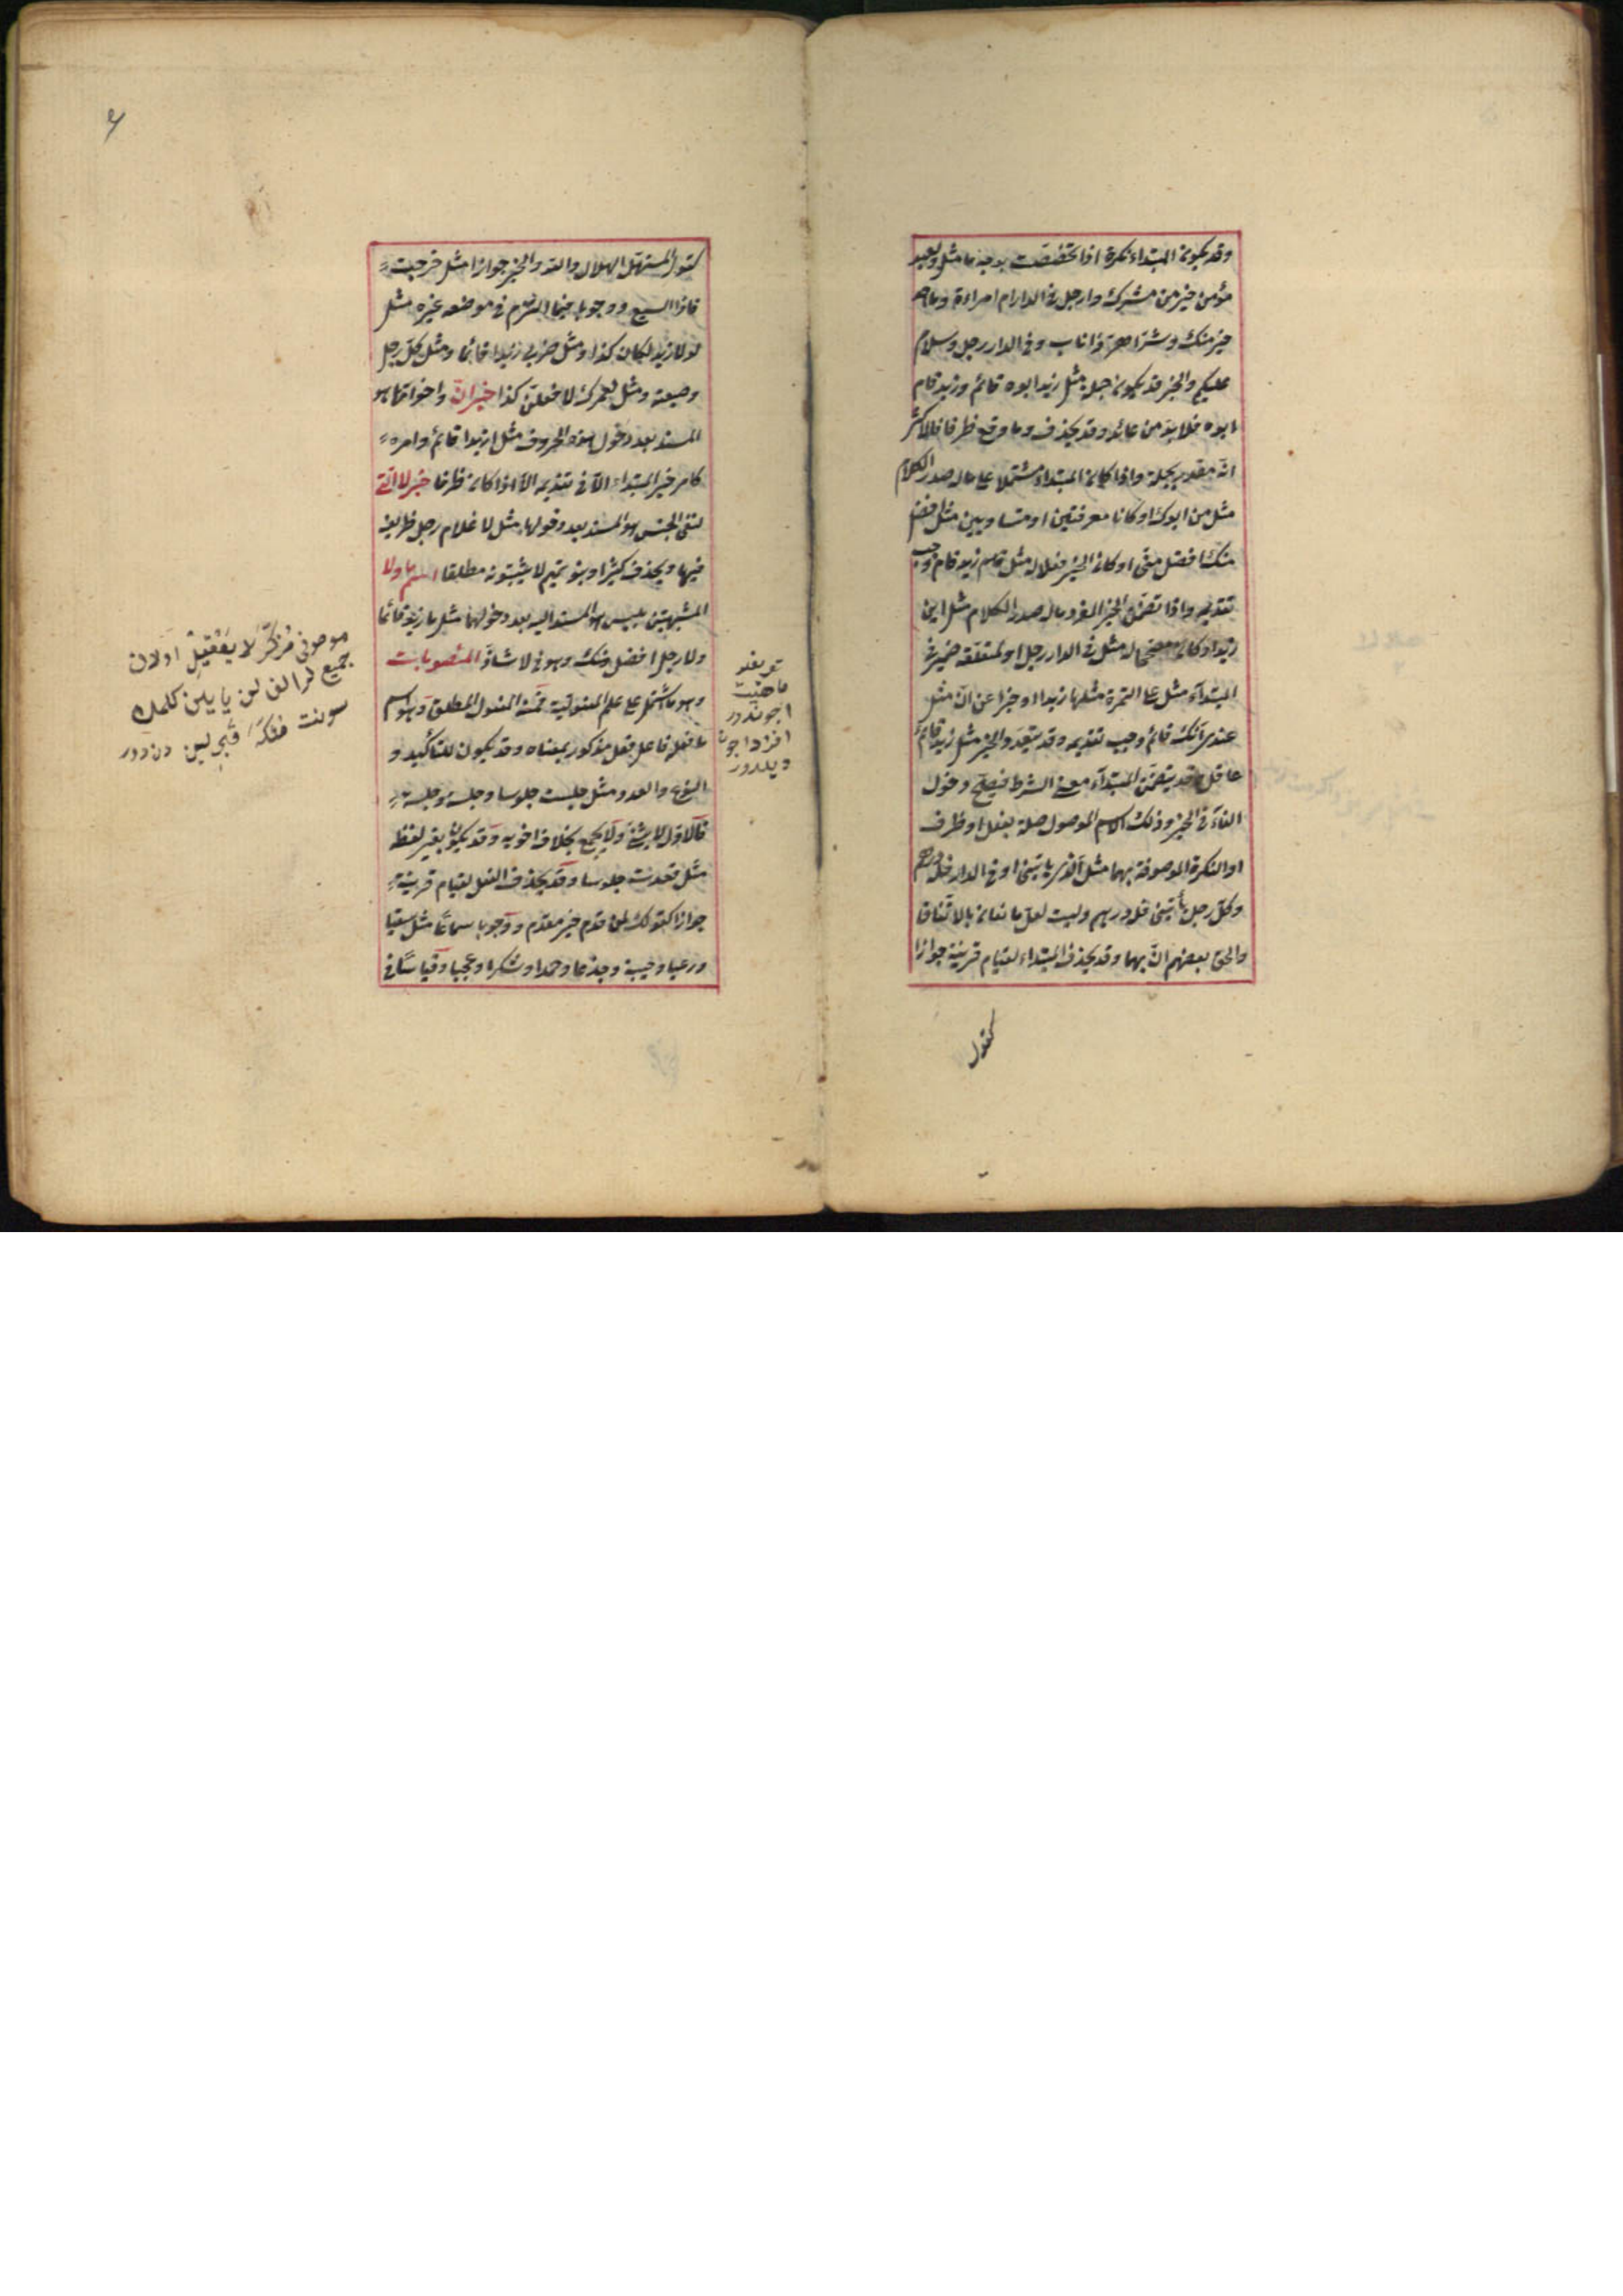 وقد يكون المبتداء نكرة اذا تخصّصت بوجه ما مثل ولعبد
مؤمن خير من مشرك وارجل في الدار ام امراءة وما احد
خير منك وشرّ اهرّ ذا ناب وفي الدار رجل وسلام
عليكم والخبر قد يكون جملة مثل زيد ابوه قائم وزيد قام
ابوه فلا بدّ من عائد وقد يحذف وما وقع ظرفا فالاكثر
انّه مقدر بجملة واذا كان المبتداء مشتملا على ما له صدر الكلام
مثل من ابوك او كانا معرفتين او متساويين مثل افضل
منك افضل منّى او كان الخبر فعلا له مثل زيد قام وجب
تقديمه واذا تضمّن الخبر المفرد ما له صدر الكلام مثل اين
زيد او كان مصحّحا له مثل في الدار رجل او لمتعلقه ضمير في
المبتدآء مثل على التمرة مثلها زبدا او خبرا عن انّ مثل
عندى انّك قائم وجب تقديمه وقد يتعدّد الخبر مثل زيد قائم
عاقل وقد يتضمّن المبتدآء معنى الشرط فيصحّ دخول
الفآء في الخبر وذلك الاسم الموصول صلة بفعل او ظرف
او النكرة الموصوفة بهما مثل الّذى ياتينى او في الدار فله درهم
وكلّ رجل يأتينى فله درهم وليت لعلّ مانعان بالاتّفاق
والحق بعضهم انّ بهما وقد يحذف المبتداء لقيام قرينة جوازا
كقول
كقول المستهلّ الهلال والله والخبر جوازا مثل خرجت
فاذا السبع ووجوبا فيما التزم في موضعه غيره مثل
لولا زيد لكان كذا ومثل ضربى زيدا قائما ومثل كلّ رجل
وضيعته ومثل لعمرك لافعلنّ كذا خبر انّ واخواتها هو
المسند بعد دخول هذه الحروف مثل ان زيدا قائم وامره
كامر خبر المبتداء الّا في تقديمه الّا اذا كان ظرفا خبر لا الّتى
لنفى الجنس هو المسند بعد دخولها مثل لا غلام رجل ظريف
فيها ويحذف كثيرا وبنو تميم لا يثبتونه مطلقا اسم ما ولا
المشبهتين بليس هو المسند اليه بعد دخولهما مثل ما زيد قائما
ولا رجل افضل منك وهو في لا شاذّ المنصوبات
وهو ما اشتمل على علم المفعولية فمنه المفعول المطلق وهو اسم
ما فعله فاعل فعل مذكور بمعناه وقد يكون للتأكيد و
النوع والعدد مثل جلست جلوسا وجلسة وجلسة
فالاوّل لا يثنّى ولا يجمع بخلاف اخويه وقد يكون بغير لفظه
مثل قعدت جلوسا وقد يحذف الفعل لقيام قرينة
جوازا كقولك لمن قدم خير مقدم ووجوبا سماعا مثل سقيا
ورعيا وخيبة وجدعا وحمدا وشكرا وعجبا وقياسا في
تعريفى
ماهيت
ايچوندور
افراد ايچون
دكلدور
موصوفى مذكّر لا يعقل اولان